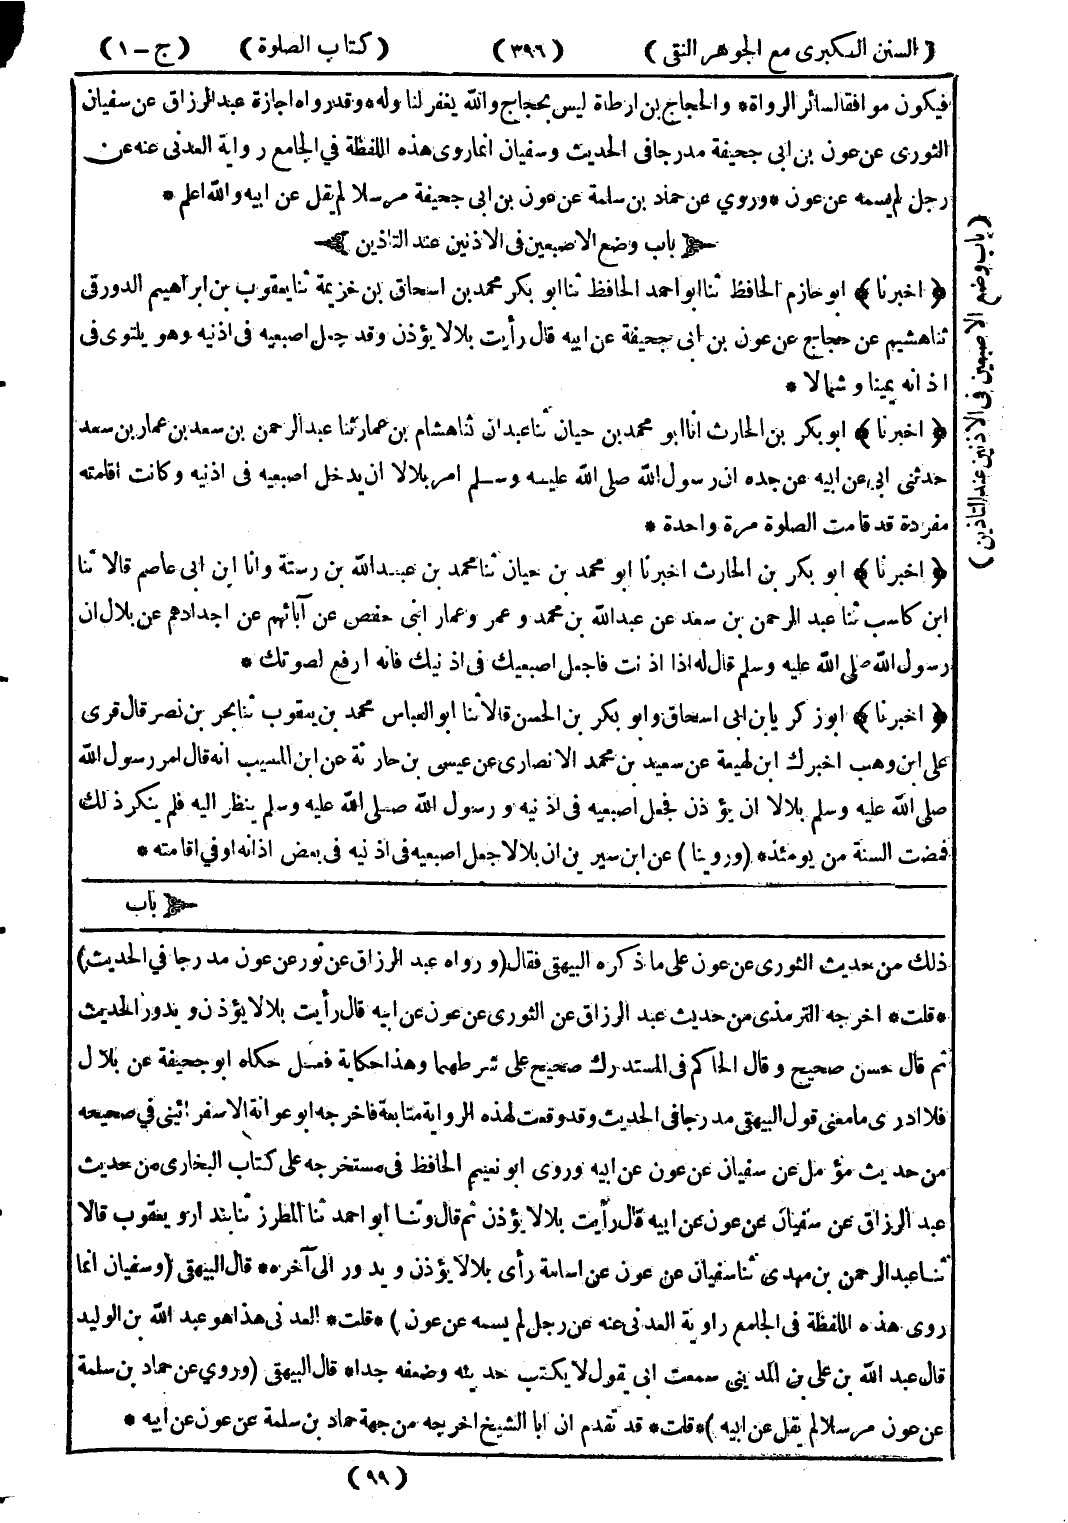 (السنن الكبرى مع الجوهر النقى) (٣٩٦) (كتاب الصلوة) (ج-١)
فيكون موافقا لسائر الرواة* والحجاج بن ارطاة ليس بحجاج والله يغفر لنا وله* وقد رواه اجازة عبد الرزاق عن سفيان
الثورى عن عون بن ابى جحيفة مدرجا فى الحديث وسفيان انما روى هذه اللفظة في الجامع رواية العدنى عنه عن
رجل لم يسمه عن عون* وروي عن حماد بن سلمة عن عون بن ابى جحيفة مرسلا لم يقل عن ابيه والله اعلم*
باب وضع الاصبعين فى الاذنين عند التاذين
﴿اخبرنا﴾ ابو حازم الحافظ ثنا ابو احمد الحافظ ثنا ابو بكر محمد بن اسحاق بن خزيمة ثنا يعقوب بن ابراهيم الدورقى
ثنا هشيم عن حجاج عن عون بن ابى جحيفة عن ابيه قال رأيت بلالا يؤذن وقد جعل اصبعيه فى اذنيه وهو يلتوى فى
اذانه يمينا وشمالا*
﴿اخبرنا﴾ ابو بكر بن الحارث انا ابو محمد بن حيان ثنا عبدان ثنا هشام بن عمار ثنا عبد الرحمن بن سعد بن عمار بن سعد
حدثنى ابى عن ابيه عن جده ان رسول الله صلى الله عليه وسلم امر بلالا ان يدخل اصبعيه فى اذنيه وكانت اقامته
مفردة قد قامت الصلوة مرة واحدة*
﴿اخبرنا﴾ ابو بكر بن الحارث اخبرنا ابو محمد بن حيان ثنا محمد بن عبد الله بن رستة وانا ابن ابى عاصم قالا ثنا
ابن كاسب ثنا عبد الرحمن بن سعد عن عبد الله بن محمد وعمر وعمار ابنى حفص عن آبائهم عن اجدادهم عن بلال ان
رسول الله صلى الله عليه وسلم قال له اذا اذنت فاجعل اصبعيك فى اذنيك فانه ارفع لصوتك*
﴿اخبرنا﴾ ابو زكريا بن ابى اسحاق وابو بكر بن الحسن قالا ثنا ابو العباس محمد بن يعقوب ثنا بحر بن نصر قال قرى
على ابن وهب اخبرك ابن لهيعة عن سعيد بن محمد الانصارى عن عيسى بن حارثة عن ابن المسيب انه قال امر رسول الله
صلى الله عليه وسلم بلالا ان يؤذن فجعل اصبعيه فى اذنيه ورسول الله صلى الله عليه وسلم ينظر اليه فلم ينكر ذلك
فمضت السنة من يومئذ* (وروينا) عن ابن سيرين ان بلالا جعل اصبعيه فى اذنيه فى بعض اذانه او في اقامته*
باب
ذلك من حديث الثورى عن عون على ما ذكره البيهقى فقال (ورواه عبد الرزاق عن ثور عن عون مدرجا في الحديث)
*قلت* اخرجه الترمذى من حديث عبد الرزاق عن الثورى عن عون عن ابيه قال رأيت بلالا يؤذن ويدور الحديث
ثم قال حسن صحيح وقال الحاكم فى المستدرك صحيح على شرطهما وهذا حكاية فعل حكاه ابو جحيفة عن بلال
فلا ادرى ما معنى قول البيهقى مدرجا فى الحديث وقد وقعت لهذه الرواية متابعة فاخرجه ابو عوانة الاسفرائينى في صحيحه
من حديث مؤمل عن سفيان عن عون عن ابيه وروى ابو نعيم الحافظ فى مستخرجه على كتاب البخارى من حديث
عبد الرزاق عن سفيان عن عون عن ابيه قال رأيت بلالا يؤذن ثم قال وثنا ابو احمد ثنا المطرز ثنا بندار ويعقوب قالا
ثنا عبد الرحمن بن مهدى ثنا سفيان عن عون عن اسامة رأى بلالا يؤذن ويدور الى آخره* قال البيهقى (وسفيان انما
روى هذه اللفظة فى الجامع راوية العدنى عنه عن رجل لم يسمه عن عون) *قلت* العدنى هذا هو عبد الله بن الوليد
قال عبد الله بن على بن المدينى سمعت ابى يقول لا يكتب حديثه وضعفه جدا* قال البيهقى (وروي عن حماد بن سلمة
عن عون مرسلا لم يقل عن ابيه) *قلت* قد تقدم ان ابا الشيخ اخرجه من جهة حماد بن سلمة عن عون عن ابيه*
(٩٩)
(باب وضع الاصبعين فى الاذنين عند التاذين)